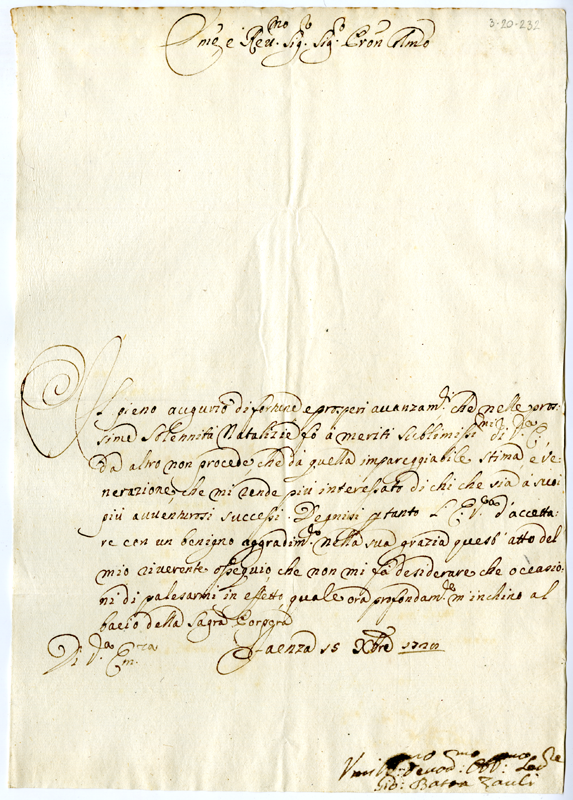 3-20-232
Em.º e Reu.mo Sig.r Sig.r Pron Colmo
Il pieno augurio di fortune e prosperi auanzam.ti che nelle pros-
sime Solennità Natalizie fò a meriti sublimissimi di V.ra E.
da altro non procede che da quella impareggiabile stima, e ve-
nerazione, che mi rende più interessato di chi che sia à suoi
più auuenturosi successi. Degnisi p tanto L'E. V.ra d'accetta-
re con un benigno aggradim.to nella sua grazia quest'atto del
mio riuerente ossequio, che non mi fà desiderare che occasio-
ni di palesarmi in effetto quale ora profondam.te m'inchino al
bacio della Sagra Porpora
Di V.ra Em.za Faenza 15 Xbre 1720
Vmil.mo Deuod.mo Obl.mo Ser.re
Gio: Batta Zauli